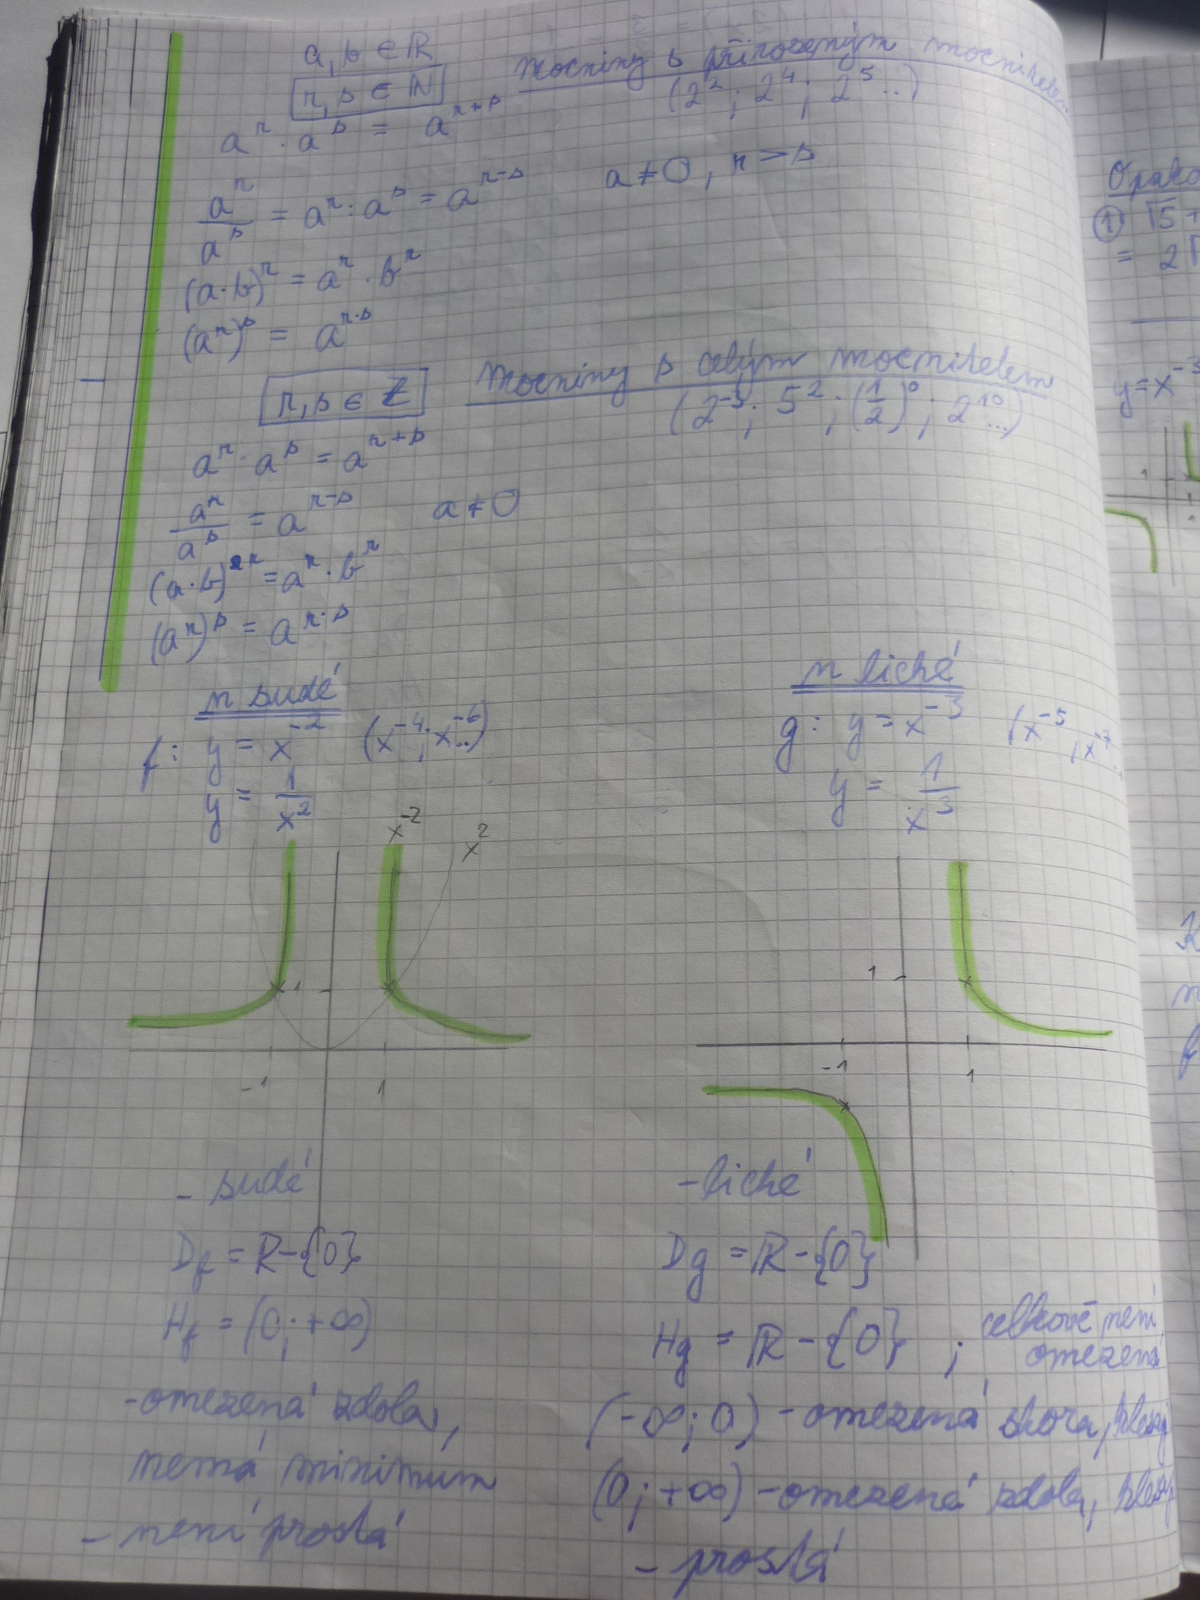 a, b ∈ ℝ
r, s ∈ ℕ
Mocniny s přirozeným mocnitelem
(2²; 2⁴; 2⁵...)
aʳ · aˢ = aʳ⁺ˢ
aʳ/aˢ = aʳ : aˢ = aʳ⁻ˢ a ≠ 0, r > s
(a·b)ʳ = aʳ · bʳ
(aʳ)ˢ = aʳ·ˢ
r, s ∈ ℤ
Mocniny s celým mocnitelem
(2⁻³; 5²; (1/2)⁰; 2¹⁰...)
aʳ · aˢ = aʳ⁺ˢ
aʳ/aˢ = aʳ⁻ˢ a ≠ 0
(a·b)ʳ = aʳ · bʳ
(aʳ)ˢ = aʳ·ˢ
n sudé
f: y = x⁻² (x⁻⁴; x⁻⁶...)
y = 1/x²
x⁻² x²
1
-1 1
- sudé
Df = ℝ - {0}
Hf = (0; +∞)
- omezená zdola,
nemá minimum
- není prostá
n liché
g: y = x⁻³ (x⁻⁵, x⁻⁷..
y = 1/x³
1
-1 1
- liché
Dg = ℝ - {0}
Hg = ℝ - {0} ; celkově není
omezená
(-∞; 0) - omezená shora,
(0; +∞) - omezená zdola,
- prostá
① √5 +
= 2√
y = x⁻³